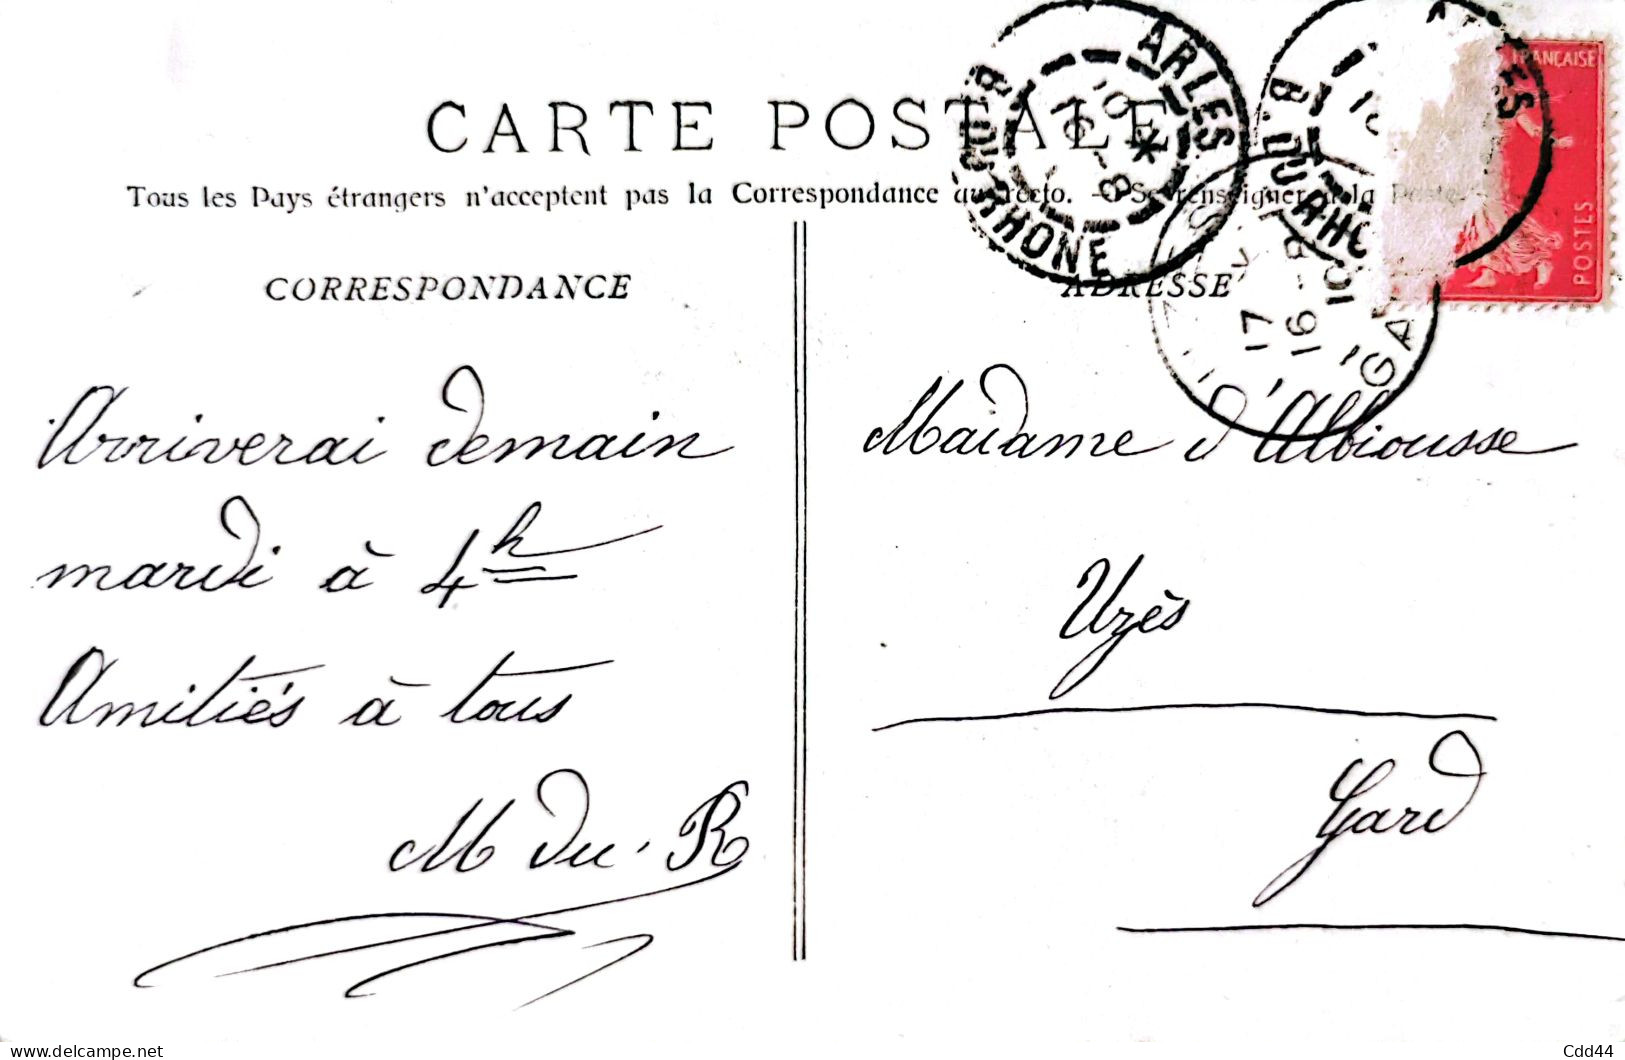 CARTE POSTALE
Tous les Pays étrangers n'acceptent pas la Correspondance au recto. — Se renseigner à la Poste.
CORRESPONDANCE
Arriverai demain
mardi à 4h
Amitiés à tous
M du. R
ADRESSE
Madame d'Albiousse
Uzès
Gard
ARLES
B. DU RHONE
16 - 8
10
B. DU RHO
17
16 - 8
10
GA
FRANÇAISE
POSTES
www.delcampe.net
Cdd44